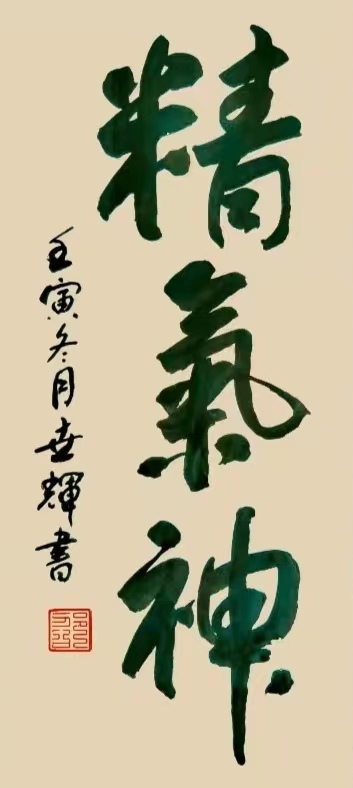 精氣神
壬寅冬月世輝書